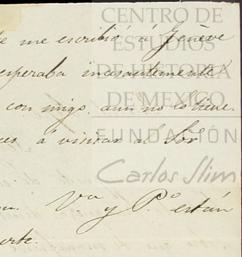 me escribió a Genève
esperaba incesantemente
con migo aun no lo tiene
a visitar al Sor
Va y Pa están
CENTRO DE
ESTUDIOS
DE HISTORIA
DE MÉXICO
FUNDACIÓN
Carlos Slim